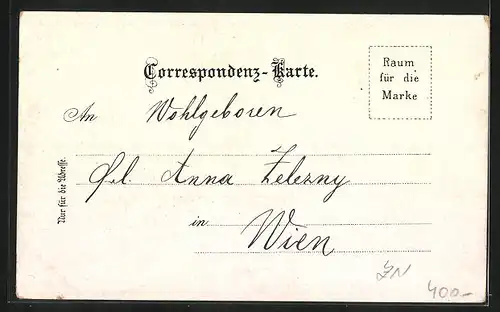 Correspondenz-Karte.
Raum
für die
Marke
An Wohlgeboren
Frl. Anna Zelezny
in Wien
Nur für die Adresse.
ZN
400.-